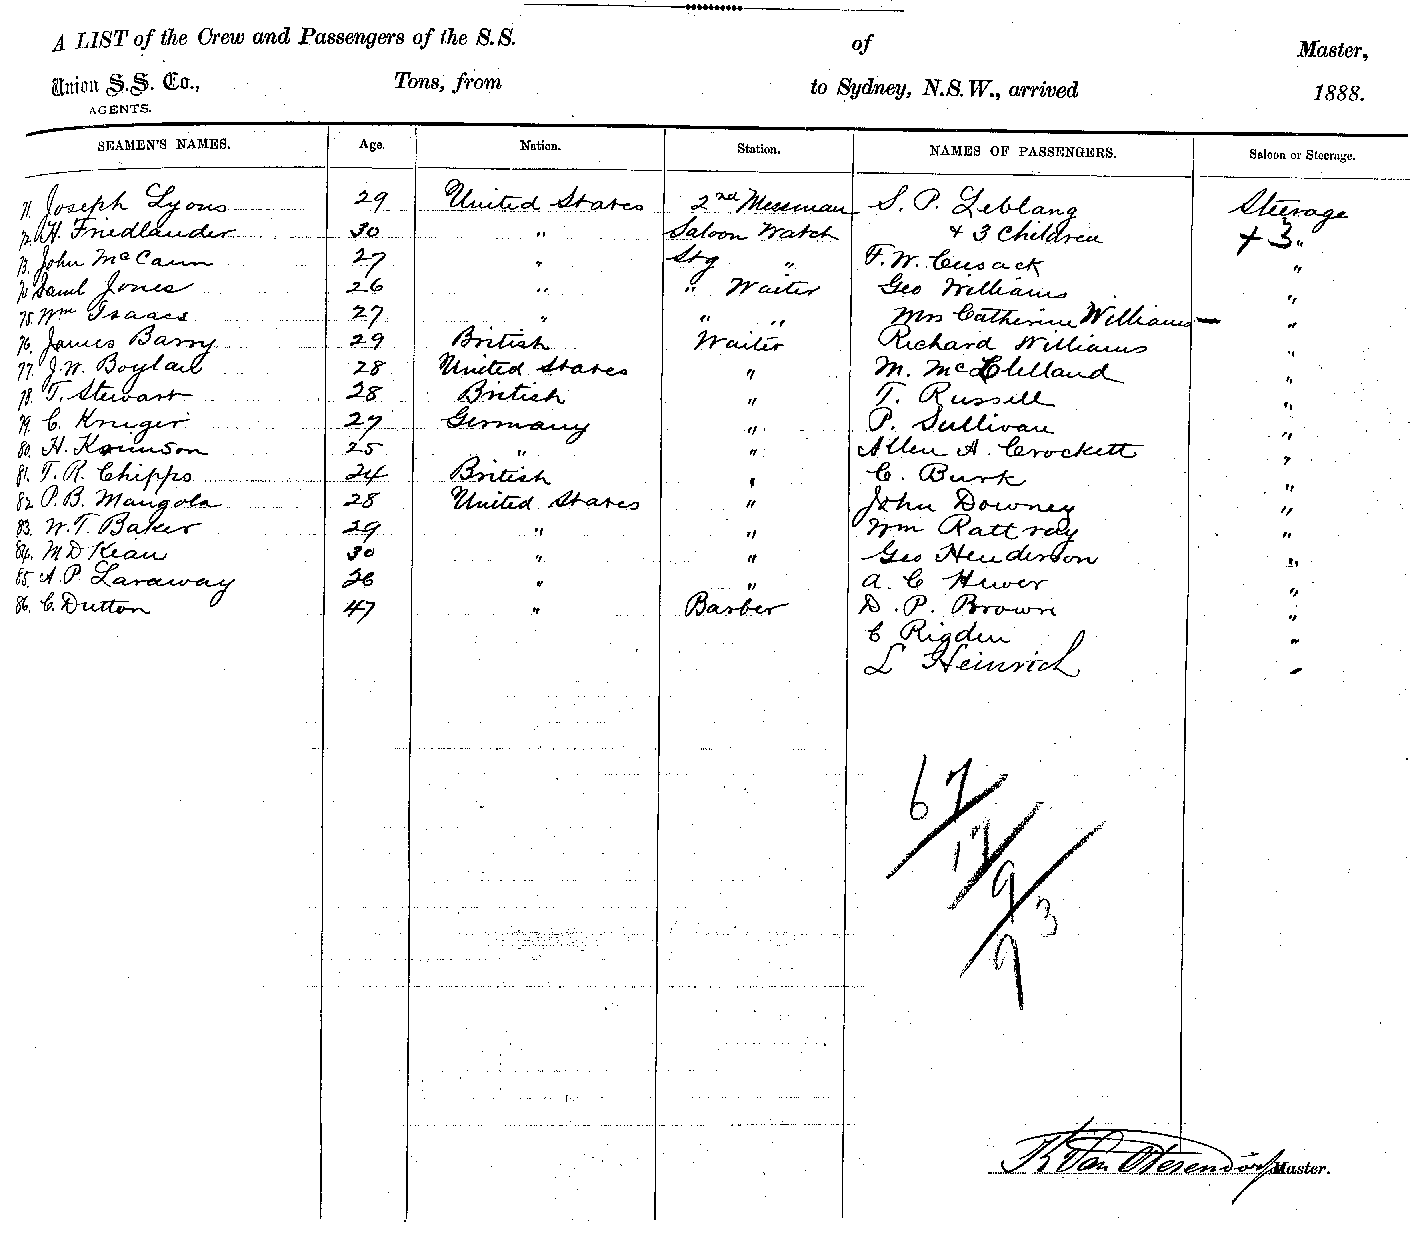 A LIST of the Crew and Passengers of the S.S. of Master,
Union S.S. Co., Tons, from to Sydney, N.S.W., arrived 1888.
AGENTS.
SEAMEN'S NAMES. Age. Nation. Station. NAMES OF PASSENGERS. Saloon or Steerage.
71. Joseph Lyons 29 United States 2nd Messman S. P. Leblang Steerage
72. H. Friedlander 30 " Saloon Watch + 3 Children + 3 "
73. John McCann 27 " Stg " F. W. Cusack "
74 Saml Jones 26 " " Waiter Geo Williams "
75. Wm Isaacs 27 " " " Mrs Catherine Williams — "
76. James Barry 29 British Waiter Richard Williams "
77. J. W. Boylan 28 United States " M. McClelland "
78. T. Stewart 28 British " T. Russell "
79. C. Kruger 27 Germany " P. Sullivan "
80. H. 25 " " Allen A. Crockett "
81. T. R. Chipps 24 British " C. Burk "
82. P. B. Mangola 28 United States " John Downey "
83. W. T. Baker 29 " " Wm Rattray "
84. M D Kean 30 " " Geo Henderson "
85. A. P. Laraway 26 " " A. C Hewer "
86. C. Dutton 47 " Barber D. P. Brown "
C Rigden "
L Heinrich "
67/
17/
9/3
9
Van Master.